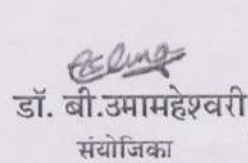 डॉ. बी.उमामहेश्वरी
संयोजिका